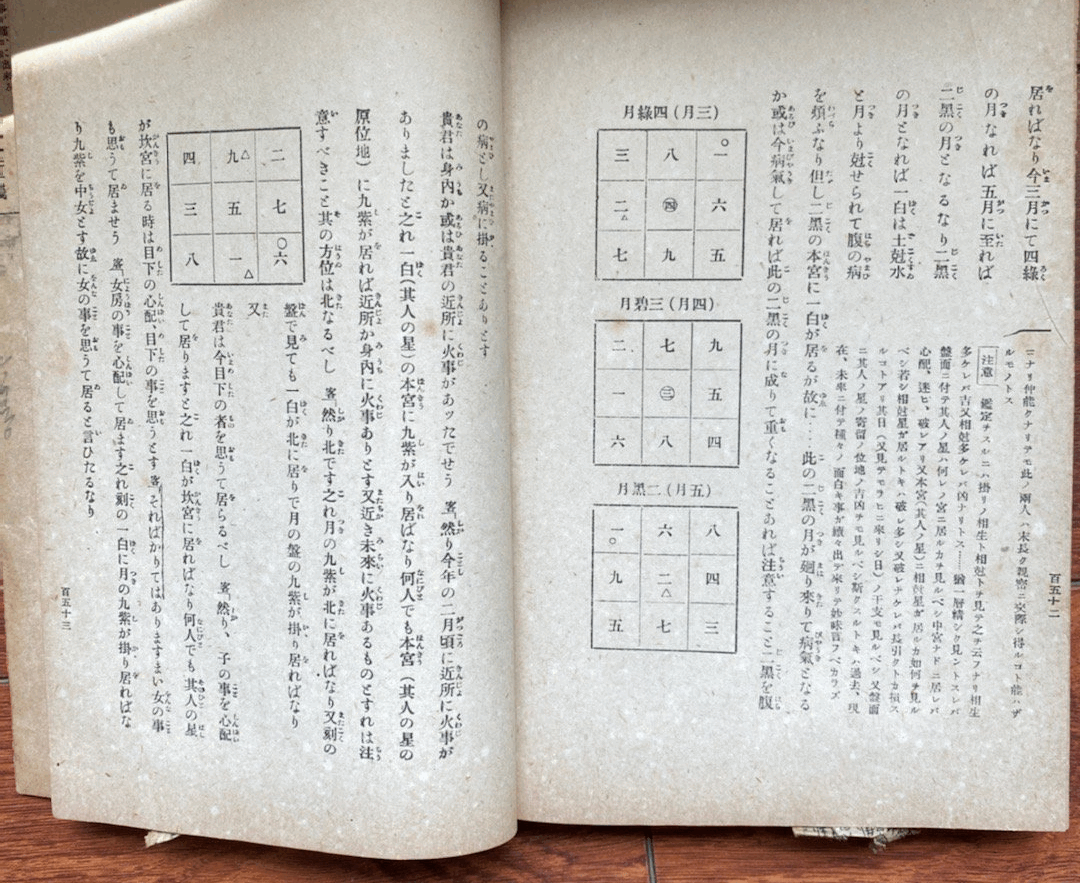 居ればなり今三月にて四綠
の月なれば五月に至れば
二黑の月となるなり二黑
の月となれば一白は土尅水
と月より尅せられて腹の病
を煩ふなり但し二黑の本宮に一白が居るが故に……此の二黑の月が廻り來りて病氣となる
か或は今病氣して居れば此の二黑の月に成りて重くなることあれば注意すること二黑を腹
ニナリ仲能クナリテモ此ノ兩人ハ末長ク親密ニ交際シ得ルコト能ハザ
ルモノトス
注意 鑑定ヲスルニハ掛リノ相生ト相尅トヲ見テ之ヲ云フナリ相生
多ケレバ吉又相尅多ケレバ凶ナリトス……猶一層精シク見ントスレバ
盤面ニ付テ其人ノ星ハ何レノ宮ニ居ルカヲ見ルベシ中宮ナドニ居レバ
心配、迷ヒ、破レアリ又本宮(其人ノ星)ニ相尅星ガ居ルカ如何ヲ見ル
ベシ若シ相尅星ガ居ルトキハ破レ多シ又破レナケレバ長引クトカ損ス
ルコトアリ其日(又見テモラヒニ來リシ日)ノ干支モ見ルベシ又盤面
ニ其人ノ星ノ寄留ノ位地ノ吉凶ヲモ見ルベシ斯クスルトキハ過去、現
在、未來ニ付テ種々ノ面白キ事ガ續々出テ來リテ妙味言フベカラズ
月綠四(月三)
三 八 一○
二△ ㊃ 六
七 九 五
月碧三(月四)
二 七 九
一 ㊂ 五
六 八 四
月黑二(月五)
一○ 六 八
九 二△ 四
五 七 三
百五十二
の病とし又病に掛ることありとす
貴君は身內か或は貴君の近所に火事があッたでせう 客「然り今年の二月頃に近所に火事が
ありましたと之れ一白(其人の星)の本宮に九紫が入り居ればなり何人でも本宮(其人の星の
原位地)に九紫が居れば近所か身內に火事ありとす又近き未來に火事あるものとすれは注
意すべきこと其の方位は北なるべし 客「然り北です之れ月の九紫が北に居ればなり又刻の
盤で見ても一白が北に居りで月の盤の九紫が掛り居ればなり
又
貴君は今目下の者を思うて居らるべし 客「然り、子の事を心配
して居りますと之れ一白が坎宮に居ればなり何人でも其人の星
四 九△ 二
三 五 七
八 一△ ○六
が坎宮に居る時は目下の心配、目下の事を思うとす 客「そればかりてはありますまい女の事
も思うて居ませう 客「女房の事を心配して居ます之れ刻の一白に月の九紫が掛り居ればな
り九紫を中女とす故に女の事を思うて居ると言ひたるなり
百五十三